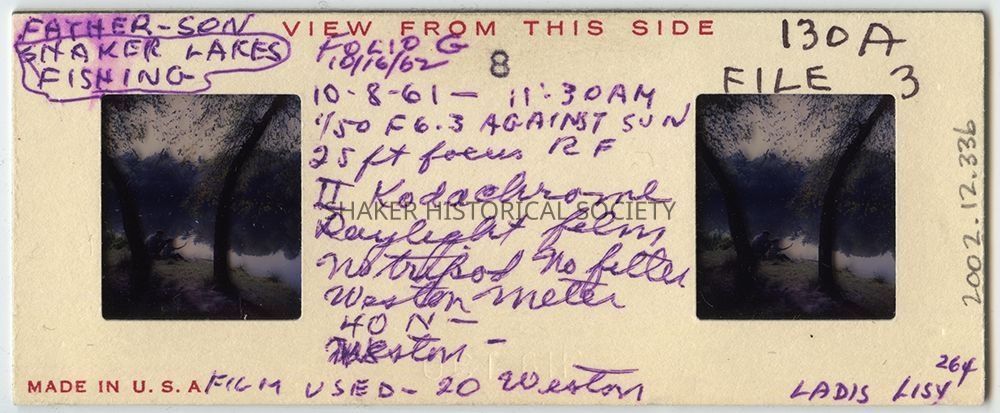 FATHER-SON
SHAKER LAKES
FISHING
VIEW FROM THIS SIDE
FOLIO G
10/16/62
8
130A
FILE 3
10-8-61 - 11:30AM
1/50 F6.3 AGAINST SUN
25 ft focus RF
II Kodachrome
SHAKER HISTORICAL SOCIETY
Daylight film
No tripod No filter
Weston meter
40 N-
Weston-
MADE IN U.S.A.
FILM USED- 20 Weston
264
LADIS LISY
2002.12.336